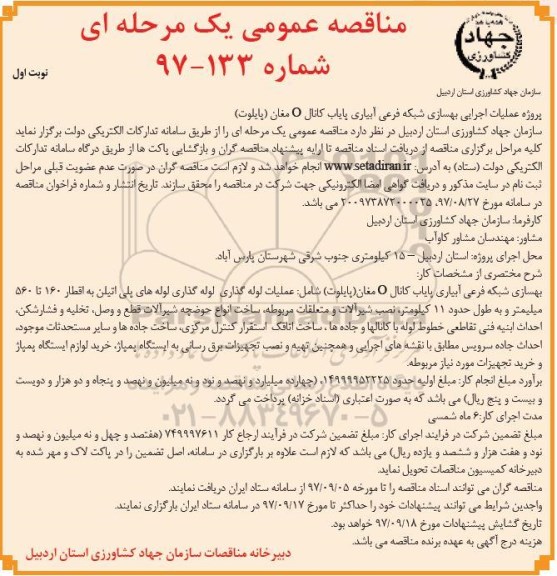 مناقصه عمومی یک مرحله ای
شماره ۱۳۳-۹۷
نوبت اول
جهاد
کشاورزی
سازمان جهاد کشاورزی استان اردبیل
پروژه عملیات اجرایی بهسازی شبکه فرعی آبیاری پایاب کانال O مغان (پایلوت)
سازمان جهاد کشاورزی استان اردبیل در نظر دارد مناقصه عمومی یک مرحله ای را از طریق سامانه تدارکات الکتریکی دولت برگزار نماید
کلیه مراحل برگزاری مناقصه از دریافت اسناد مناقصه تا ارایه پیشنهاد مناقصه گران و بازگشایی پاکت ها از طریق درگاه سامانه تدارکات
الکتریکی دولت (ستاد) به آدرس: www.setadiran.ir انجام خواهد شد و لازم است مناقصه گران در صورت عدم عضویت قبلی مراحل
ثبت نام در سایت مذکور و دریافت گواهی امضا الکترونیکی جهت شرکت در مناقصه را محقق سازند. تاریخ انتشار و شماره فراخوان مناقصه
در سامانه مورخ ۹۷/۰۸/۲۷، ۲۰۰۹۷۳۸۷۲۰۰۰۰۲۵ می باشد.
کارفرما: سازمان جهاد کشاورزی استان اردبیل
مشاور: مهندسان مشاور کاوآب
محل اجرای پروژه: استان اردبیل – ۱۵ کیلومتری جنوب شرقی شهرستان پارس آباد.
شرح مختصری از مشخصات کار:
بهسازی شبکه فرعی آبیاری پایاب کانال O مغان(پایلوت) شامل: عملیات لوله گذاری لوله گذاری لوله های پلی اتیلن به اقطار ۱۶۰ تا ۵۶۰
میلیمتر و به طول حدود ۱۱ کیلومتر، نصب شیرآلات و متعلقات مربوطه، ساخت انواع حوضچه شیرآلات قطع و وصل، تخلیه و فشارشکن،
احداث ابنیه فنی تقاطعی خطوط لوله با کانالها و جاده ها ، ساخت اتاقک استقرار کنترل مرکزی، ساخت جاده ها و سایر مستحدثات موجود،
احداث جاده سرویس مطابق با نقشه های اجرایی و همچنین تهیه و نصب تجهیزات برق رسانی به ایستگاه پمپاژ، خرید لوازم ایستگاه پمپاژ
و خرید تجهیزات مورد نیاز مربوطه.
برآورد مبلغ انجام کار: مبلغ اولیه حدود ۱۴۹۹۹۹۵۲۲۲۵، (چهارده میلیارد و نهصد و نود و نه میلیون و نهصد و پنجاه و دو هزار و دویست
و بیست و پنج ریال) می باشد که به صورت اعتباری (اسناد خزانه) پرداخت می گردد.
مدت اجرای کار:۶ ماه شمسی
مبلغ تضمین شرکت در فرایند اجرای کار: مبلغ تضمین شرکت در فرآیند ارجاع کار ۷۴۹۹۹۷۶۱۱ (هفتصد و چهل و نه میلیون و نهصد و
نود و هفت هزار و ششصد و یازده ریال) می باشد که لازم است علاوه بر بارگزاری در سامانه، اصل تضمین را در پاکت لاک و مهر شده به
دبیرخانه کمیسیون مناقصات تحویل نماید.
مناقصه گران می توانند اسناد مناقصه را تا مورخه ۹۷/۰۹/۰۵ از سامانه ستاد ایران دریافت نمایند.
واجدین شرایط می توانند پیشنهادات خود را حداکثر تا مورخ ۹۷/۰۹/۱۷ در سامانه ستاد ایران بارگزاری نمایند.
تاریخ گشایش پیشنهادات مورخ ۹۷/۰۹/۱۸ خواهد بود.
هزینه درج آگهی به عهده برنده مناقصه می باشد.
دبیرخانه مناقصات سازمان جهاد کشاورزی استان اردبیل
۰۲۱-۸۸۳۴۹۶۷۰-۵